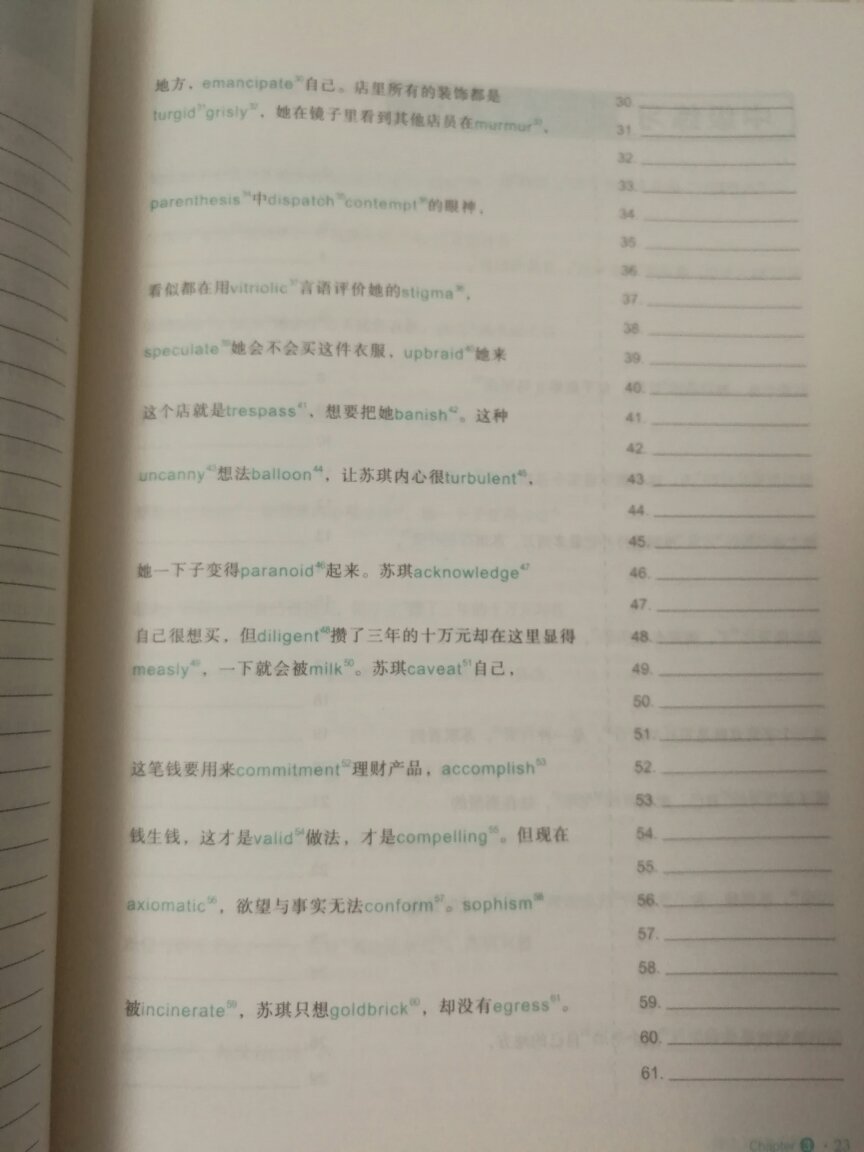 地方，emancipate³⁰自己。店里所有的装饰都是
turgid³¹grisly³²，她在镜子里看到其他店员在murmur³³，
parenthesis³⁴中dispatch³⁵contempt³⁶的眼神，
看似都在用vitriolic³⁷言语评价她的stigma³⁸，
speculate³⁹她会不会买这件衣服，upbraid⁴⁰她来
这个店就是trespass⁴¹、想要把她banish⁴²。这种
uncanny⁴³想法balloon⁴⁴，让苏琪内心很turbulent⁴⁵，
她一下子变得paranoid⁴⁶起来。苏琪acknowledge⁴⁷
自己很想买，但diligent⁴⁸攒了三年的十万元却在这里显得
measly⁴⁹，一下就会被milk⁵⁰。苏琪caveat⁵¹自己，
这笔钱要用来commitment⁵²理财产品，accomplish⁵³
钱生钱，这才是valid⁵⁴做法，才是compelling⁵⁵。但现在
axiomatic⁵⁶，欲望与事实无法conform⁵⁷。sophism⁵⁸
被incinerate⁵⁹，苏琪只想goldbrick⁶⁰，却没有egress⁶¹。
30.
31.
32.
33.
34.
35.
36.
37.
38.
39.
40.
41.
42.
43.
44.
45.
46.
47.
48.
49.
50.
51.
52.
53.
54.
55.
56.
57.
58.
59.
60.
61.
Chapter 3 · 23